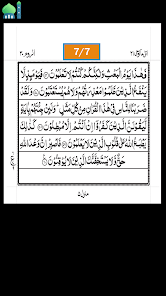 اتل ما اوحی ۲۱
7/7
الروم ۳۰
فَهٰذَا يَوْمُ الْبَعْثِ وَلٰكِنَّكُمْ كُنْتُمْ لَا تَعْلَمُوْنَ ۝ فَيَوْمَئِذٍ لَّا
يَنْفَعُ الَّذِيْنَ ظَلَمُوْا مَعْذِرَتُهُمْ وَلَا هُمْ يُسْتَعْتَبُوْنَ ۝ وَلَقَدْ
ضَرَبْنَا لِلنَّاسِ فِيْ هٰذَا الْقُرْاٰنِ مِنْ كُلِّ مَثَلٍ ؕ وَلَئِنْ جِئْتَهُمْ بِاٰيَةٍ
لَّيَقُوْلَنَّ الَّذِيْنَ كَفَرُوْۤا اِنْ اَنْتُمْ اِلَّا مُبْطِلُوْنَ ۝ كَذٰلِكَ
يَطْبَعُ اللّٰهُ عَلٰى قُلُوْبِ الَّذِيْنَ لَا يَعْلَمُوْنَ ۝ فَاصْبِرْ اِنَّ وَعْدَ اللّٰهِ
حَقٌّ وَّلَا يَسْتَخِفَّنَّكَ الَّذِيْنَ لَا يُوْقِنُوْنَ ۝
منزل ۵